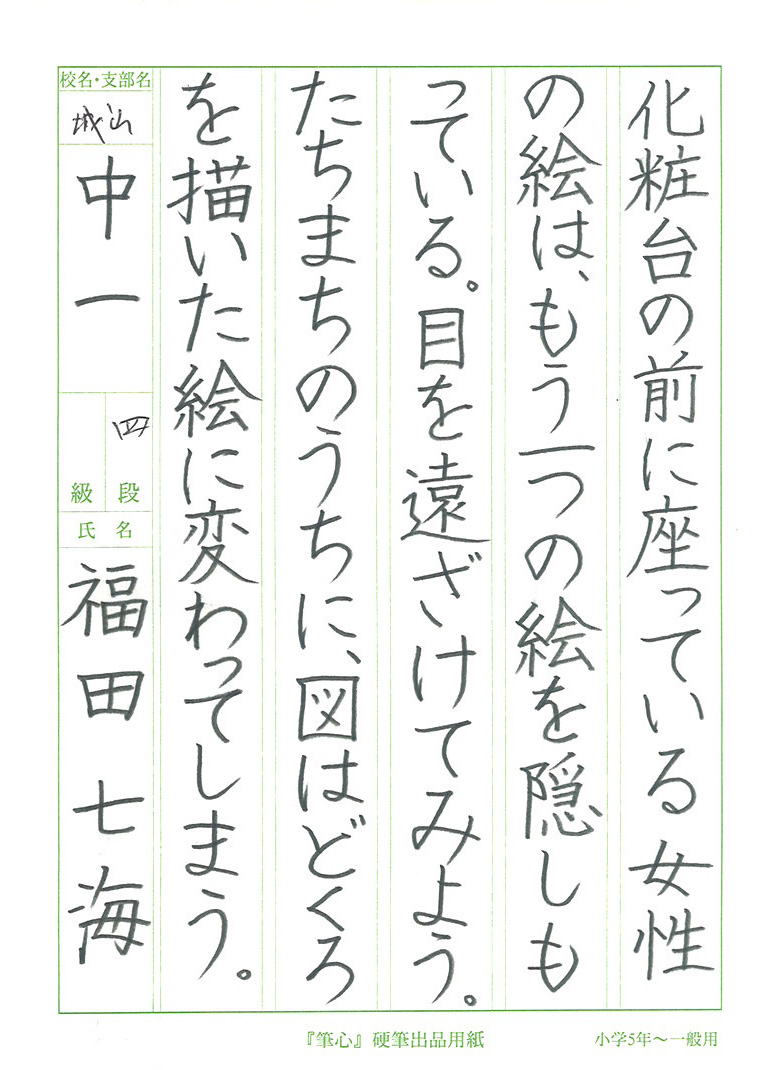 化粧台の前に座っている女性
の絵は、もう一つの絵を隠しも
っている。目を遠ざけてみよう。
たちまちのうちに、図はどくろ
を描いた絵に変わってしまう。
校名・支部名
城山
中一
四
級 段
氏名
福田七海
『筆心』硬筆出品用紙
小学5年～一般用